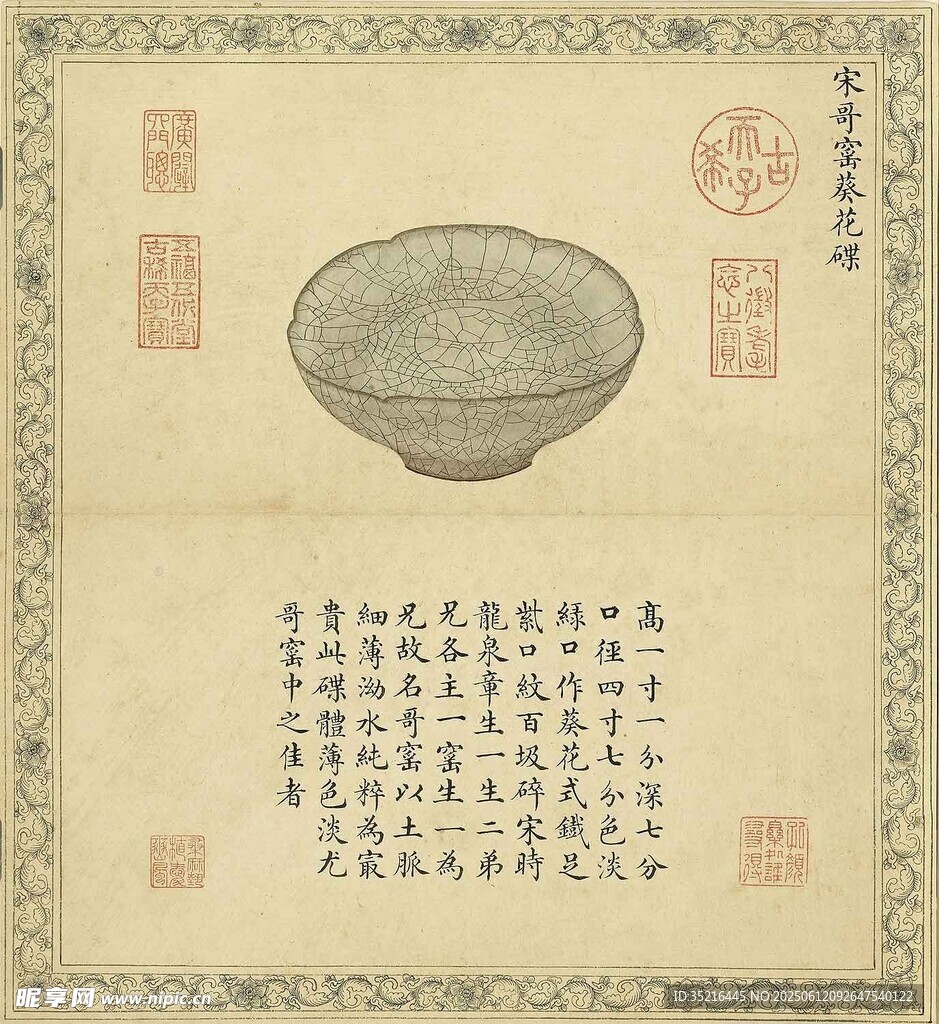 宋哥窰葵花碟
古希天子
八徵耄念之寶
五福五代堂古稀天子寶
髙一寸一分深七分
口徑四寸七分色淡
緑口作葵花式鐵足
紫口紋百圾碎宋時
龍泉章生一生二弟
兄各主一窰生一為
兄故名哥窰以土脈
細薄泑水純粹為㝡
貴此碟體薄色淡尤
哥窰中之佳者
昵享网 www.nipic.cn
ID:35216445 NO:20250612092647540122